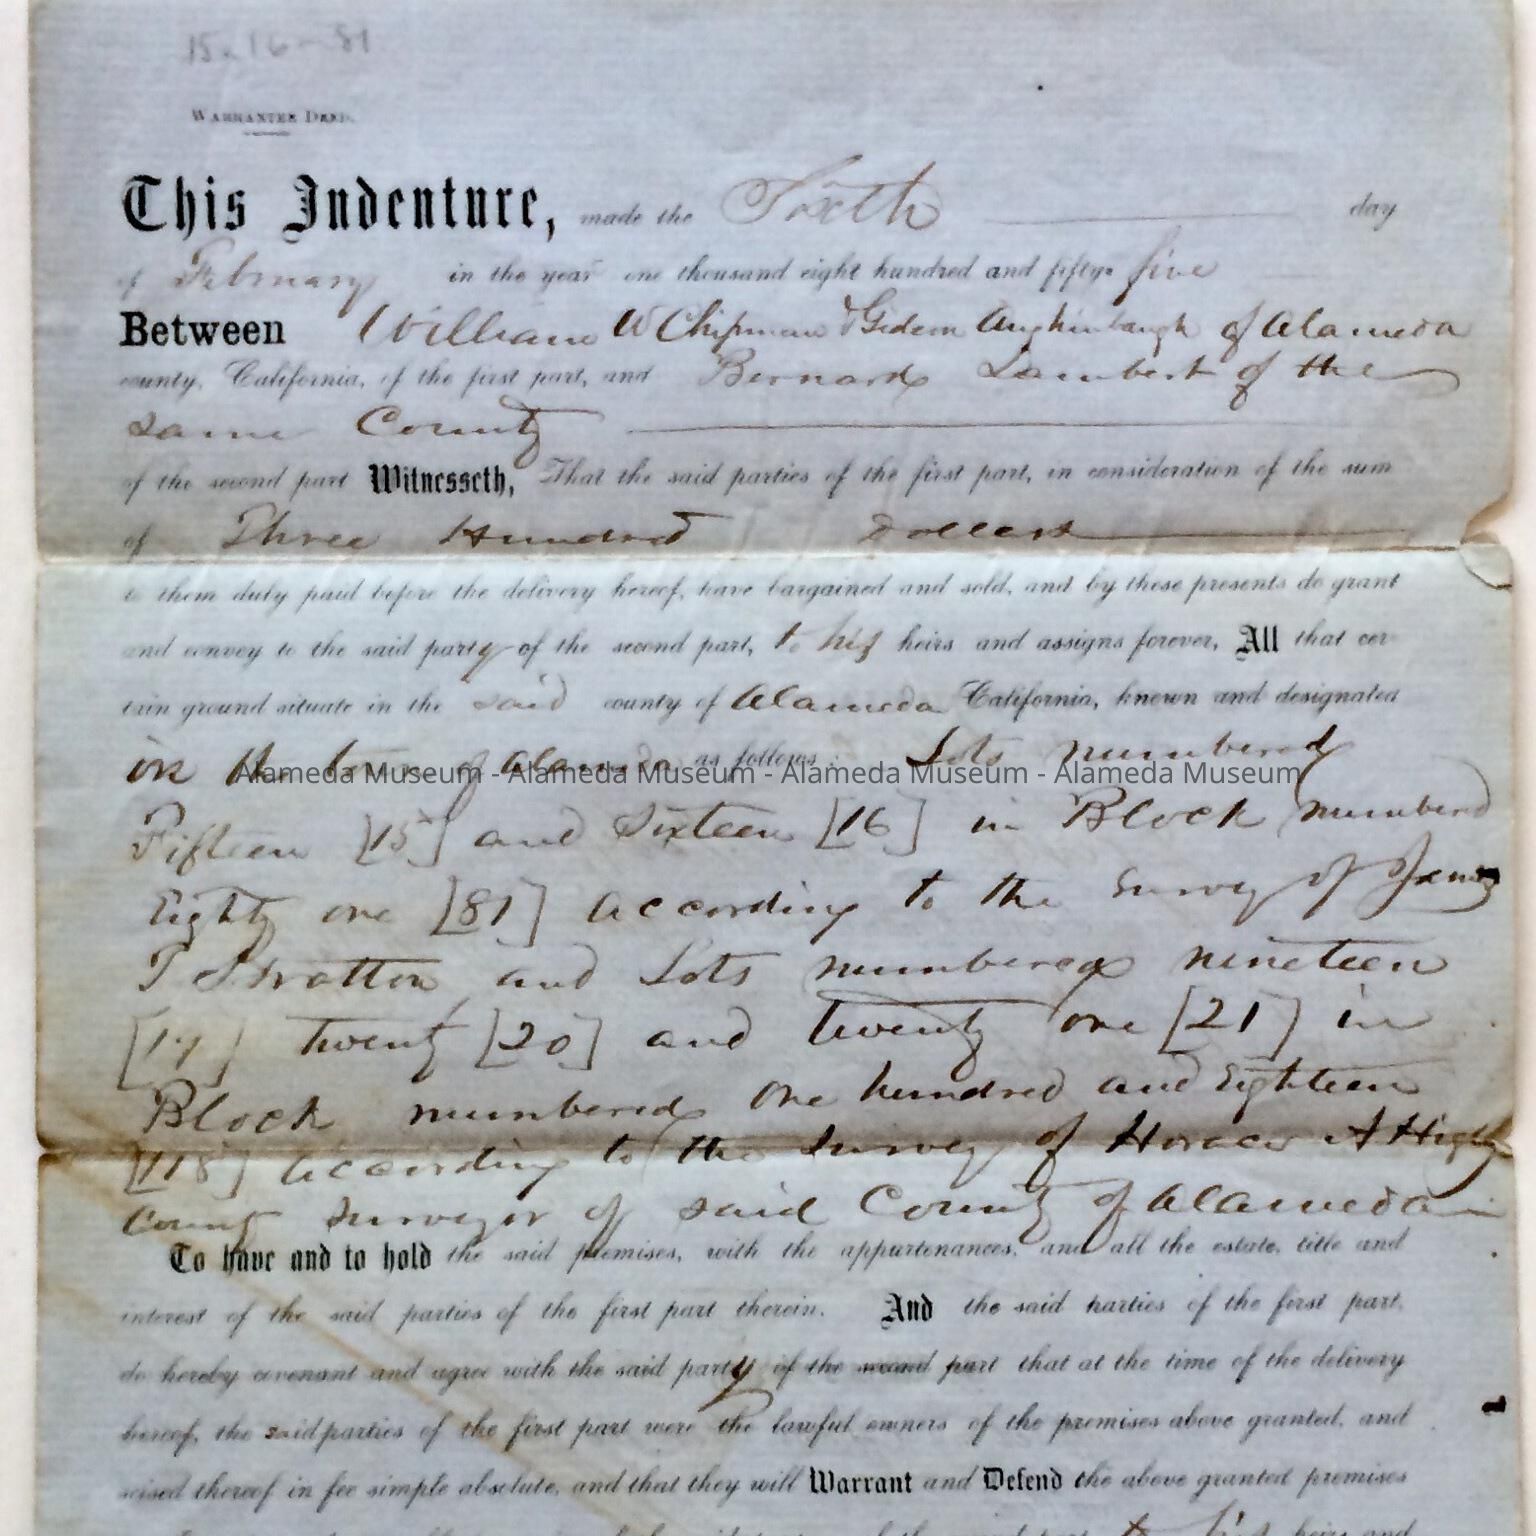 15.16-81
WARRANTEE DEED.
This Indenture, made the Sixth day
of February in the year one thousand eight hundred and fifty- five
Between William W Chipman & Gideon Aughinbaugh of Alameda
county, California, of the first part, and Bernard Lambert of the
same County
of the second part Witnesseth, That the said parties of the first part, in consideration of the sum
of Three Hundred Dollars
to them duly paid before the delivery hereof, have bargained and sold, and by these presents do grant
and convey to the said party of the second part, to his heirs and assigns forever, All that cer-
tain ground situate in the said county of Alameda California, known and designated
in the town of Alameda as follows: Lots numbered
Alameda Museum - Alameda Museum - Alameda Museum - Alameda Museum
Fifteen [15] and Sixteen [16] in Block numbered
Eighty one [81] according to the Survey of James
T Stratton and Lots numbered nineteen
[19] twenty [20] and twenty one [21] in
Block numbered one hundred and Eighteen
[118] according to the Survey of Horace A Higley
County Surveyor of said County of Alameda
To have and to hold the said premises, with the appurtenances, and all the estate, title and
interest of the said parties of the first part therein. And the said parties of the first part,
do hereby covenant and agree with the said party of the second part that at the time of the delivery
hereof, the said parties of the first part were the lawful owners of the premises above granted, and
seised thereof in fee simple absolute, and that they will Warrant and Defend the above granted premises
heirs and